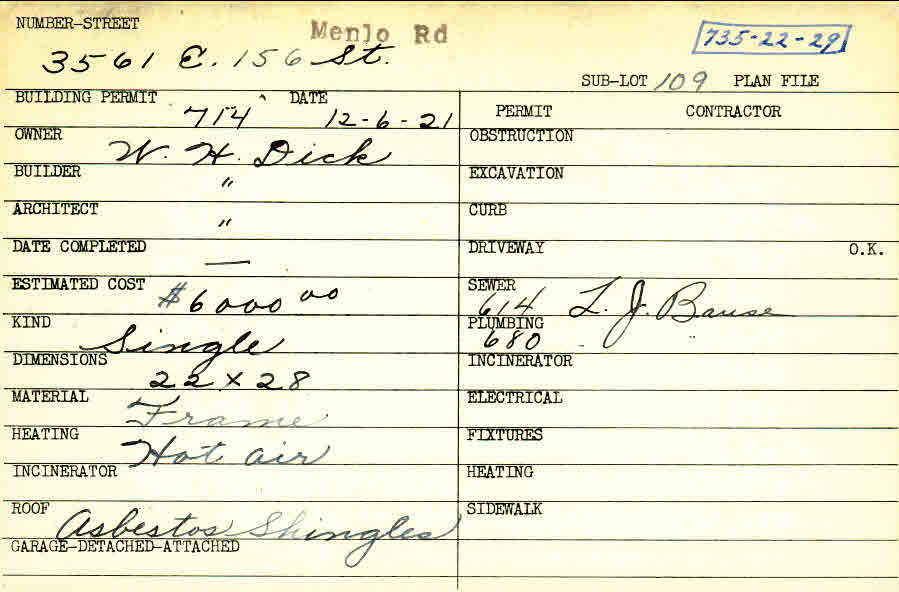 NUMBER-STREET Menlo Rd 735-22-29
3561 E. 156 St.
SUB-LOT 109 PLAN FILE
BUILDING PERMIT 714 DATE 12-6-21
PERMIT CONTRACTOR
OWNER W. H. Dick
OBSTRUCTION
BUILDER "
EXCAVATION
ARCHITECT "
CURB
DATE COMPLETED —
DRIVEWAY O.K.
ESTIMATED COST $6000 00
SEWER 614 L. J. Bause
KIND Single
PLUMBING 680 "
DIMENSIONS 22 x 28
INCINERATOR
MATERIAL Frame
ELECTRICAL
HEATING Hot air
FIXTURES
INCINERATOR
HEATING
ROOF Asbestos Shingles
SIDEWALK
GARAGE-DETACHED-ATTACHED